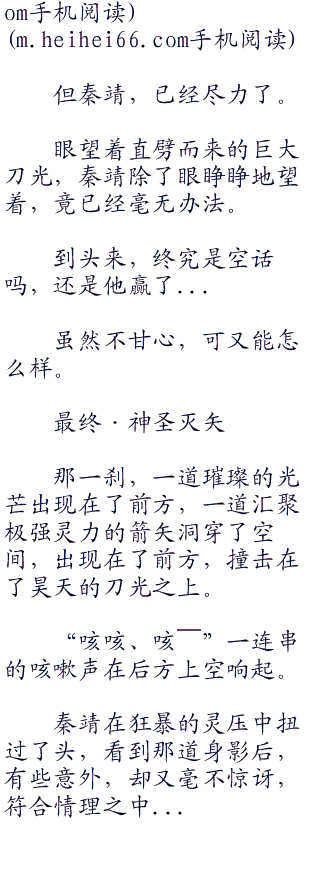 om手机阅读)
(m.heihei66.com手机阅读)
但秦靖，已经尽力了。
眼望着直劈而来的巨大
刀光，秦靖除了眼睁睁地望
着，竟已经毫无办法。
到头来，终究是空话
吗，还是他赢了...
虽然不甘心，可又能怎
么样。
最终·神圣灭矢
那一刹，一道璀璨的光
芒出现在了前方，一道汇聚
极强灵力的箭矢洞穿了空
间，出现在了前方，撞击在
了昊天的刀光之上。
“咳咳、咳——”一连串
的咳嗽声在后方上空响起。
秦靖在狂暴的灵压中扭
过了头，看到那道身影后，
有些意外，却又毫不惊讶，
符合情理之中...